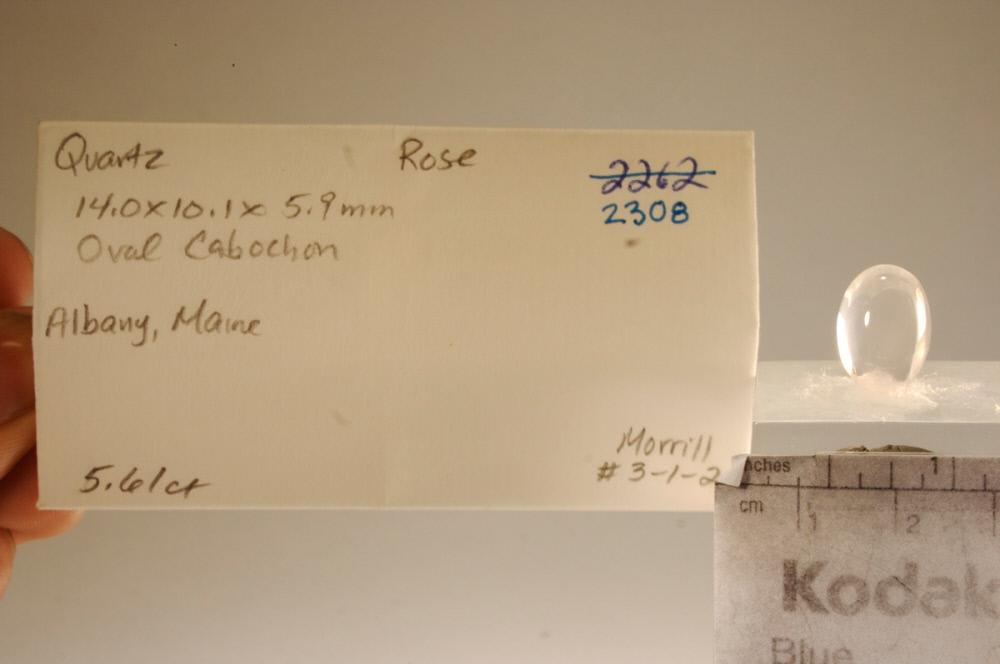 Quartz Rose
2262
14.0x10.1x 5.9mm
2308
Oval Cabochon
Albany, Maine
Morrill
5.61ct
# 3-1-2
inches 1
cm 1 2
Kodak
Blue